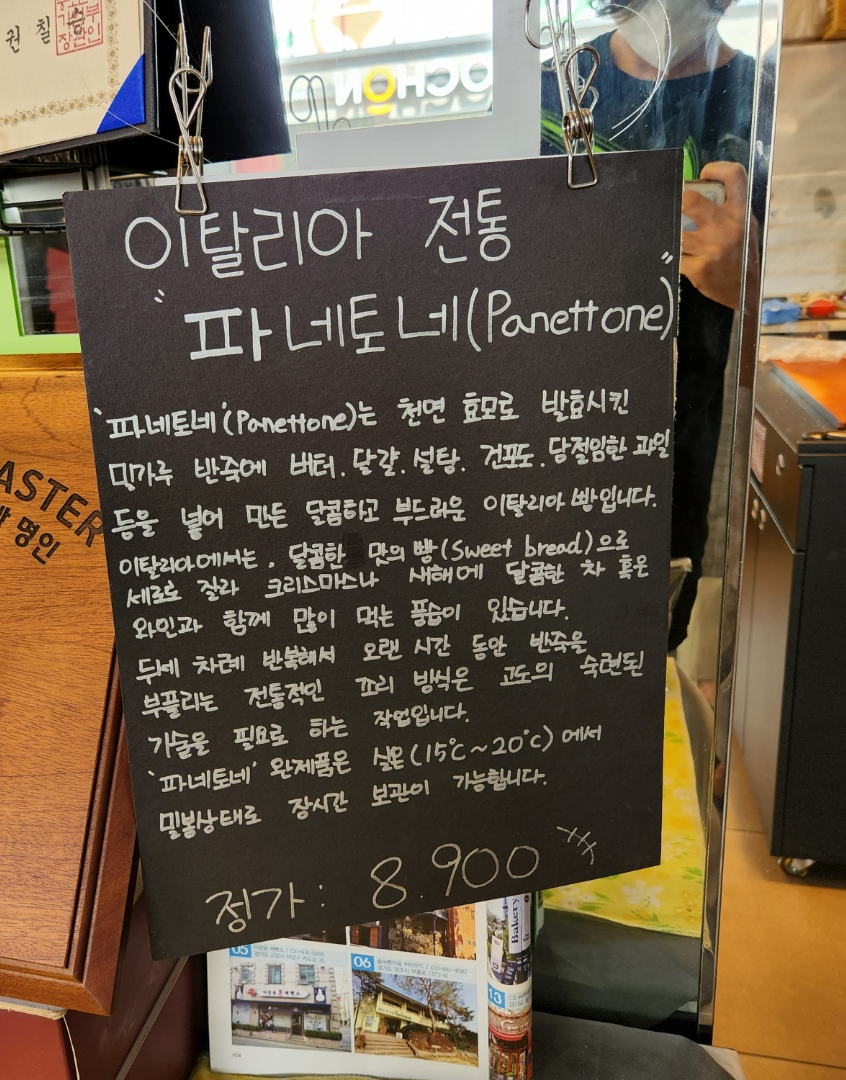 권 칠
OCHON
ASTER
명인
이탈리아 전통
"파네토네(Panettone)"
'파네토네'(Panettone)는 천연 효모로 발효시킨
밀가루 반죽에 버터. 달걀. 설탕. 건포도. 당절임한 과일
등을 넣어 만든 달콤하고 부드러운 이탈리아 빵입니다.
이탈리아에서는, 달콤한 맛의 빵(Sweet bread)으로
세로로 잘라 크리스마스나 새해에 달콤한 차 혹은
와인과 함께 많이 먹는 풍습이 있습니다.
두세 차례 반복해서 오랜 시간 동안 반죽을
부풀리는 전통적인 조리 방식은 고도의 숙련된
기술을 필요로 하는 작업입니다.
'파네토네' 완제품은 실온(15℃~20℃)에서
밀봉상태로 장시간 보관이 가능합니다.
정가: 8.900
05
06
13
Bakery